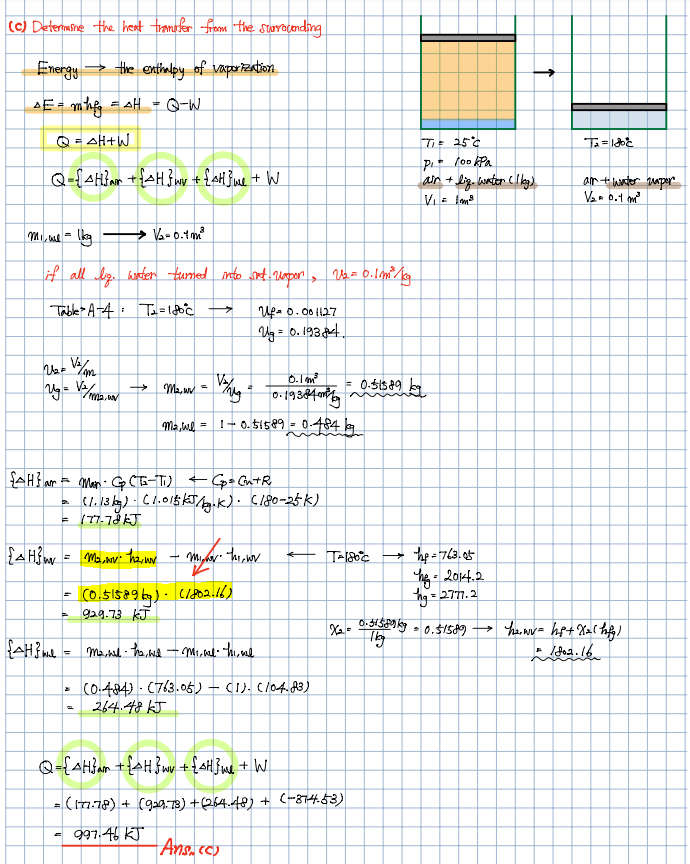 (c) Determine the heat transfer from the surrounding
Energy → the enthalpy of vaporization
ΔE = mhfg = ΔH = Q-W
Q = ΔH+W
Q={ΔH}air +{ΔH}wv +{ΔH}wl + W
T1 = 25°C
p1 = 100 kPa
air + liq. water (1kg)
V1 = 1m³
T2 = 180°C
air + water vapor
V2 = 0.1 m³
m1,wl = 1kg → V2 = 0.1m³
if all liq. water turned into sat. vapor, v2 = 0.1m³/kg
Table A-4 : T2 = 180°C → vf = 0.001127
vg = 0.19384.
v2 = V2/m
vg = V2/m2,wv → m2,wv = V2/vg = 0.1m³ / 0.19384m³/kg = 0.51589 kg
m2,wl = 1 - 0.51589 = 0.484 kg
{ΔH}air = mair · Cp (T2-T1) ← Cp = Cv+R
= (1.13kg) · (1.015kJ/kg.K) · (180-25K)
= 177.78kJ
{ΔH}wv = m2,wv · h2,wv - m1,wv · h1,wv ← T=180°C → hf = 763.05
hfg = 2014.2
hg = 2777.2
= (0.51589kg) · (1802.16)
= 929.73 kJ
x2 = 0.51589kg / 1kg = 0.51589 → h2,wv = hf + x2(hfg)
= 1802.16
{ΔH}wl = m2,wl · h2,wl - m1,wl · h1,wl
= (0.484) · (763.05) - (1) · (104.83)
= 264.48 kJ
Q={ΔH}air +{ΔH}wv +{ΔH}wl + W
= (177.78) + (929.73) + (264.48) + (-374.53)
= 997.46 kJ
Ans. (c)